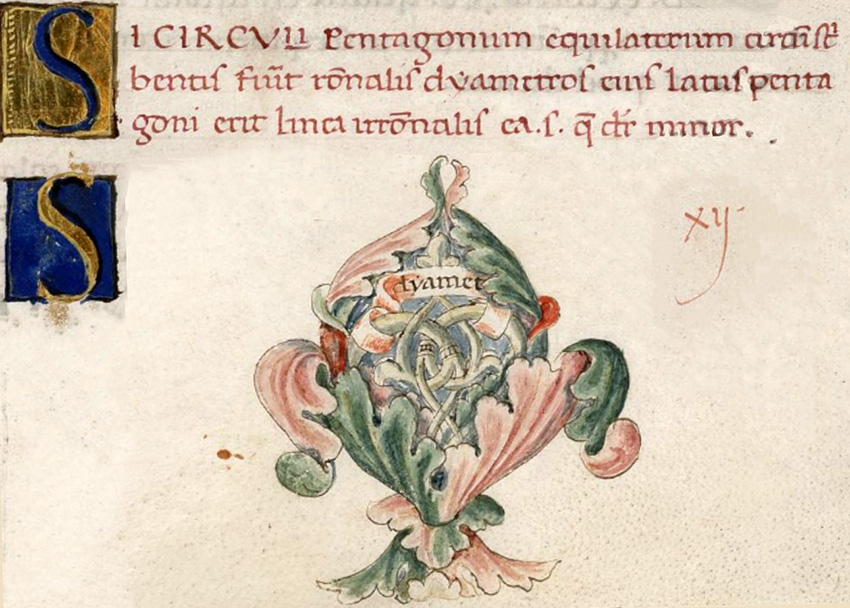 SI CIRCULI Pentagonum equilaterum circūscͥ
bentis fiūt rōnalis dyametros eius latus penta
goni erit linea irrōnalis ea.s. q̄ dr̄ minor.
S
dyamet
xij